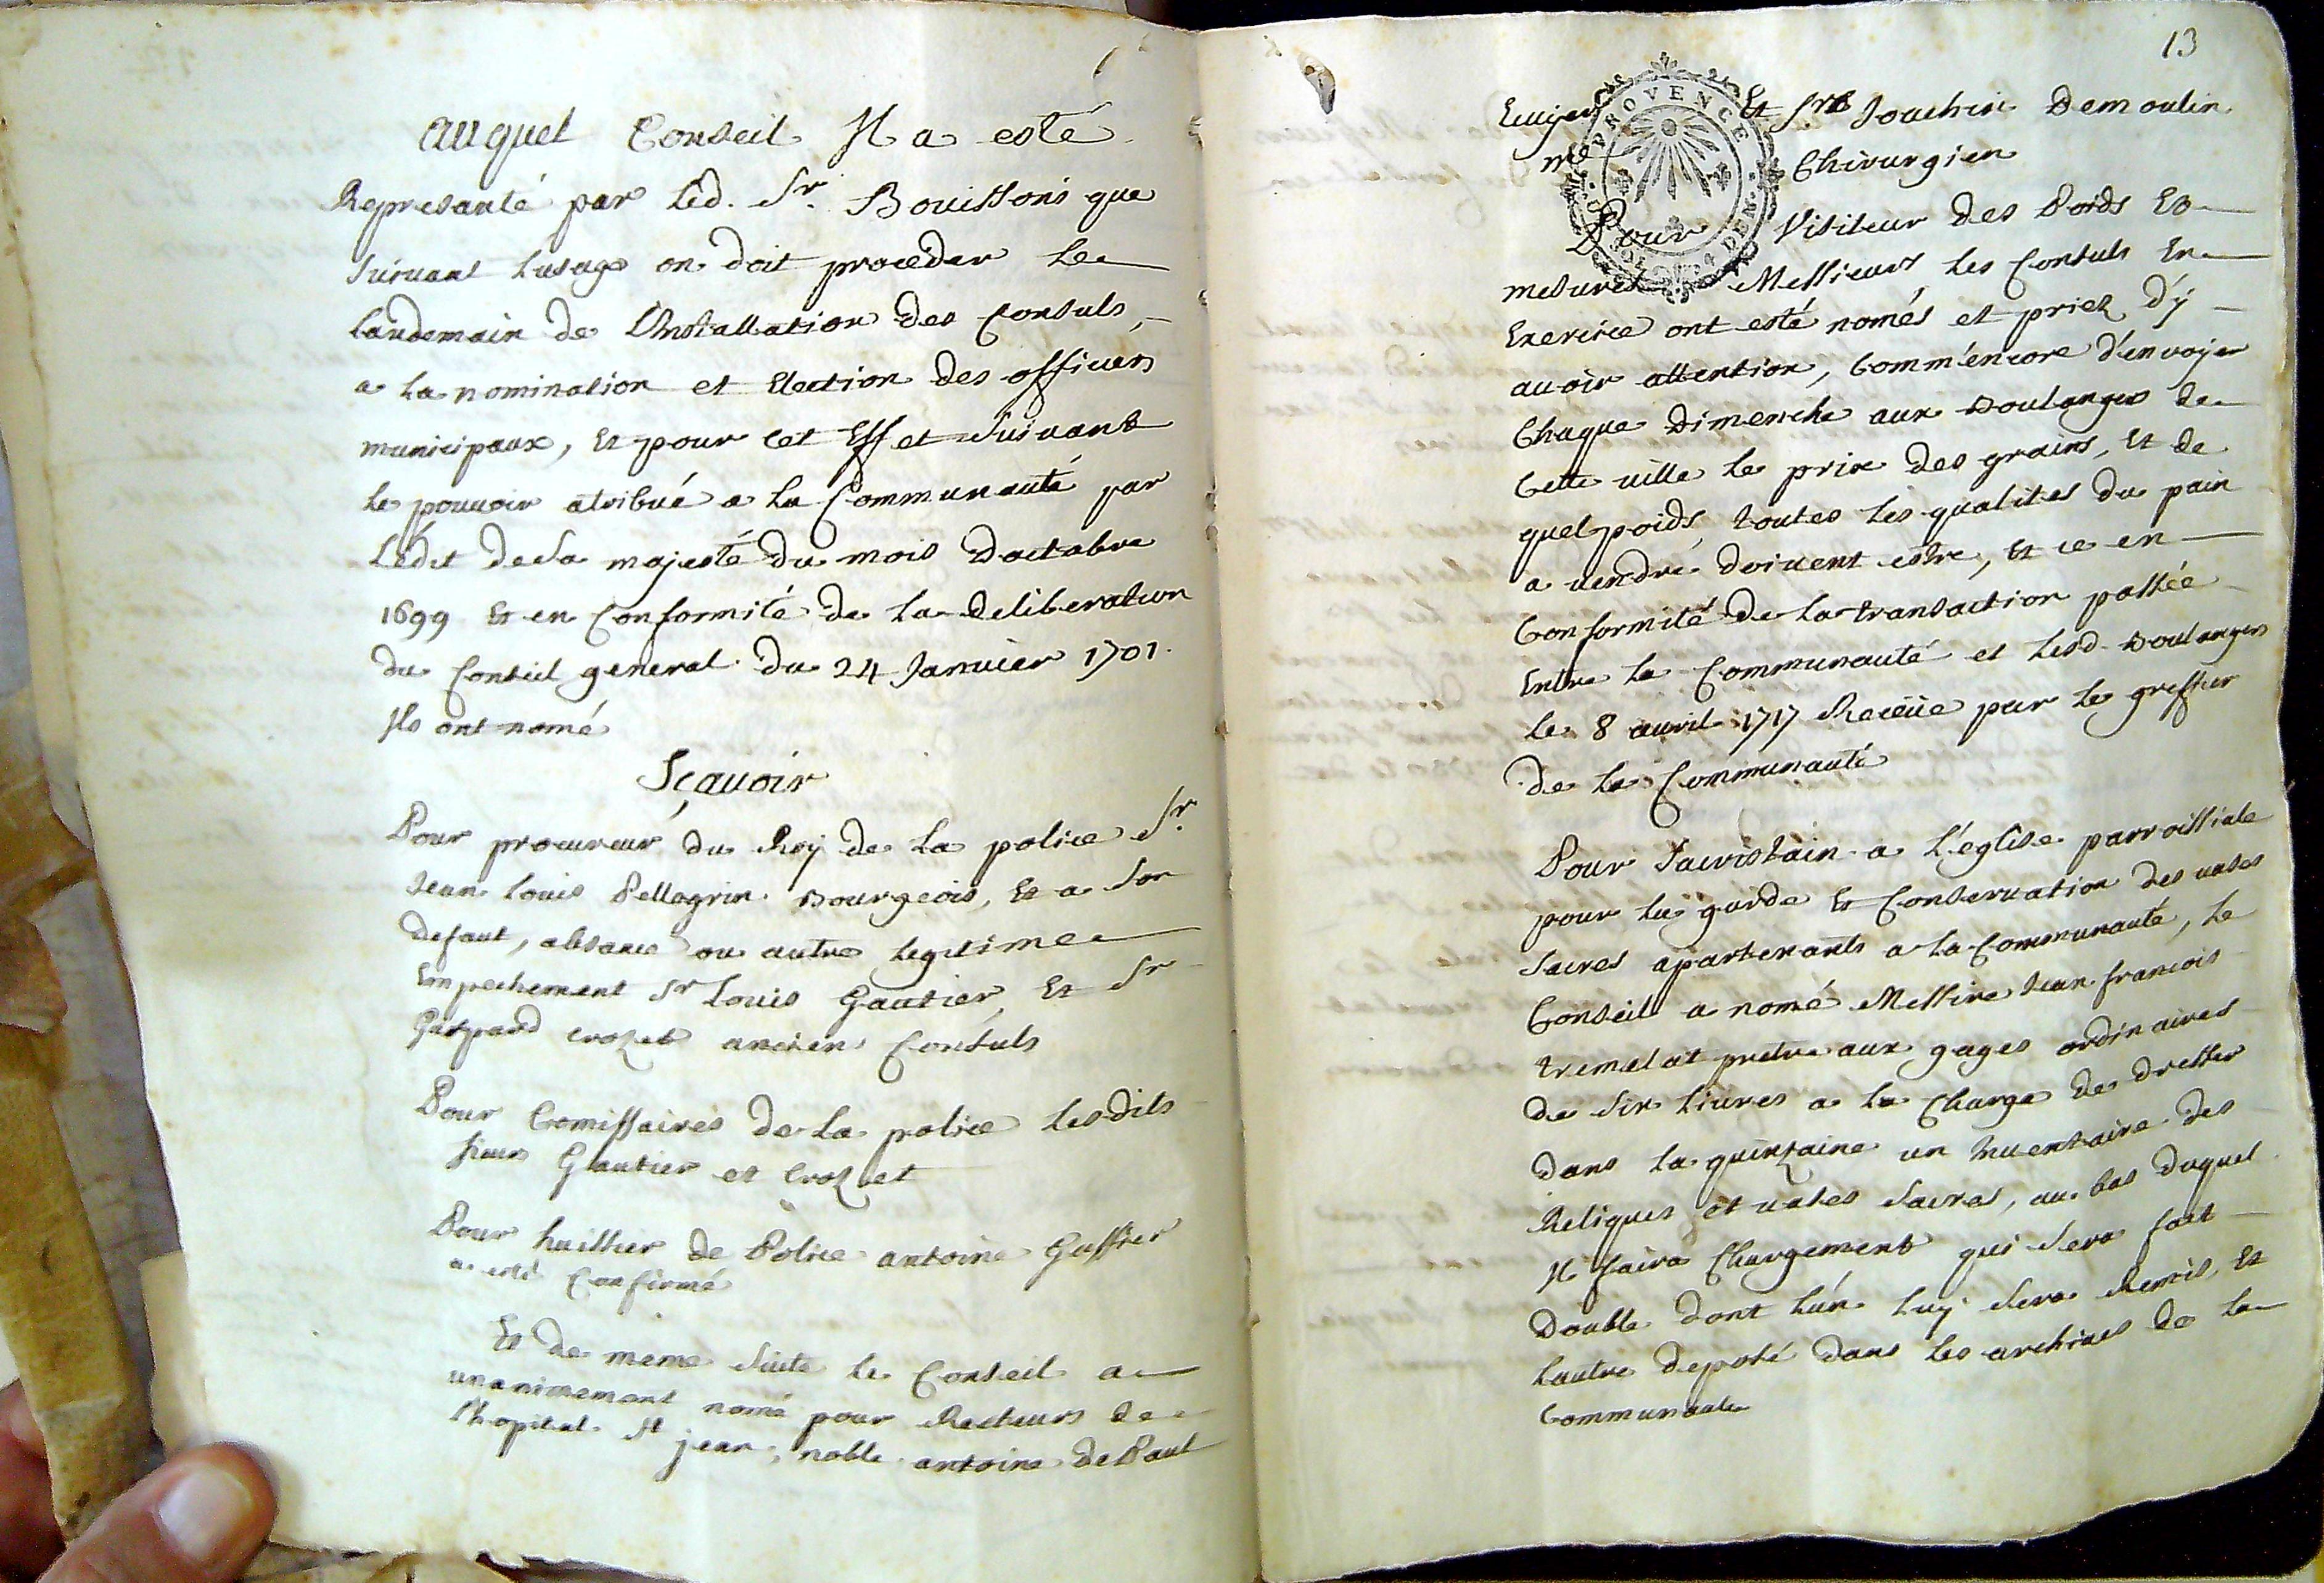 Auquel Conseil Il a esté
Represanté par led. Sr. Bouissons que
suivant lusage on doit proceder le
landemain de L'Installation des Consuls,
a la nomination et Election des officiers
municipaux, Et pour cet Effet suivant
le pouvoir atribué a la Communauté par
Lédit de sa majesté du mois Doctobre
1699 Et en Conformité de la deliberation
du Conseil general du 24 Janvier 1701.
Ils ont nomé
Sçavoir
Pour procureur du Roy de la police Sr.
Jean Louis Pellegrin Bourgeois, Et a son
defaut, absance ou autre legitime
Empechement Sr Louis Gautier, Et Sr
Gaspard Crozet ancien Consuls
Pour Comissaires de la police lesdits
sieurs Gautier et Crozet
Pour huissier de Police antoine Gassier
a esté Confirmé
Et de meme suite le Conseil a
unanimement nomé pour Recteurs de
l'hopital St jean, noble antoine de Paul
13
Ecuyer Et Sr Joachin Demoulin
me Chirurgien
PROVENCE
DEN.
Pour Visiteur des Poids Et
mesures Messieurs les Consuls En
Exercice ont esté només et priez d'y
avoir attention, Comm'encore d'envoyer
Chaque Dimenche aux Boulangers de
Cette ville le prix des grains, Et de
quel poids, toutes les qualites du pain
a vendre doivent estre, Et ce en
Conformité de la transaction passée
Entre la Communauté et lesd. Boulangers
le 8 avril 1717 Receüe par le greffier
de la Communauté
Pour Sacristain a L'église parroissiale
pour la garde Et Conservation des vases
sacres apartenants a la Communauté, le
Conseil a nomé Messire Jean francois
tremelat pretre aux gages ordinaires
de six livres a la Charge de dresser
dans la quinzaine un Inventaire des
Reliques et vases sacres, au bas duquel
Il faira Chargement qui sera fait
Double dont l'un luy sera Remis, Et
lautre deposé dans les archives de la
Communaute